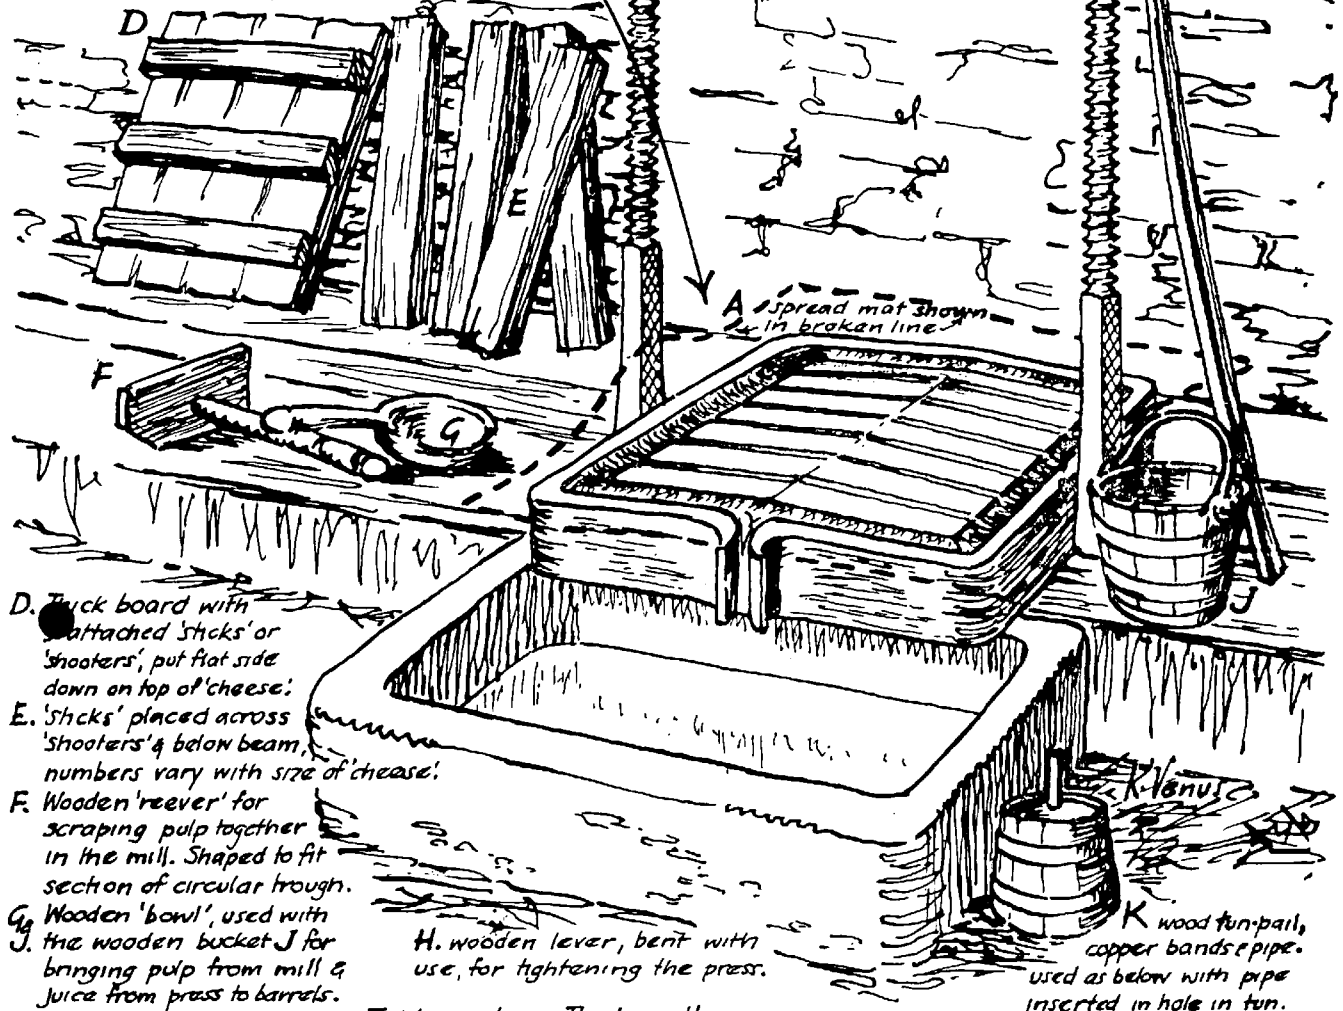 D
E
A spread mat shown
in broken line
F
G
J
D. Truck board with
attached 'sticks' or
'shooters', put flat side
down on top of 'cheese'.
E. 'Sticks' placed across
'shooters' & below beam,
numbers vary with size of 'cheese'.
F. Wooden 'reever' for
scraping pulp together
in the mill. Shaped to fit
section of circular trough.
G & Wooden 'bowl', used with
J. the wooden bucket J for
bringing pulp from mill &
juice from press to barrels.
H. wooden lever, bent with
use, for tightening the press.
K. Venus
K wood tun-pail,
copper bands & pipe.
used as below with pipe
inserted in hole in tun.